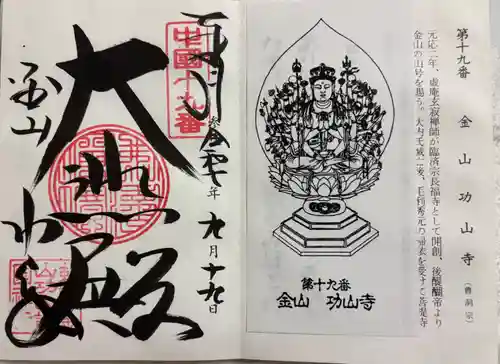 第十九番
金山 功山寺 (曹洞宗)
元応二年、虚庵玄寂禅師が臨済宗長福寺として開創、後醍醐帝より
金山の山号を賜う。大内氏滅亡後、毛利秀元の
第十九番
金山 功山寺
中國十九番
奉拝
年九月十九日
大悲殿
金山
功山寺